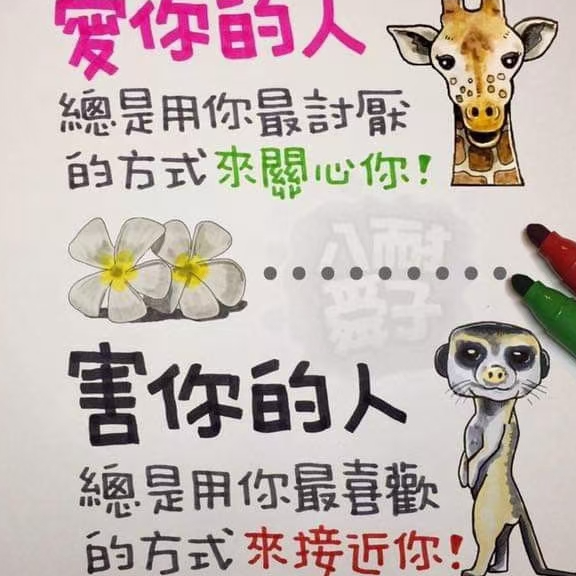 愛你的人
總是用你最討厭
的方式來關心你!
害你的人
總是用你最喜歡
的方式來接近你!